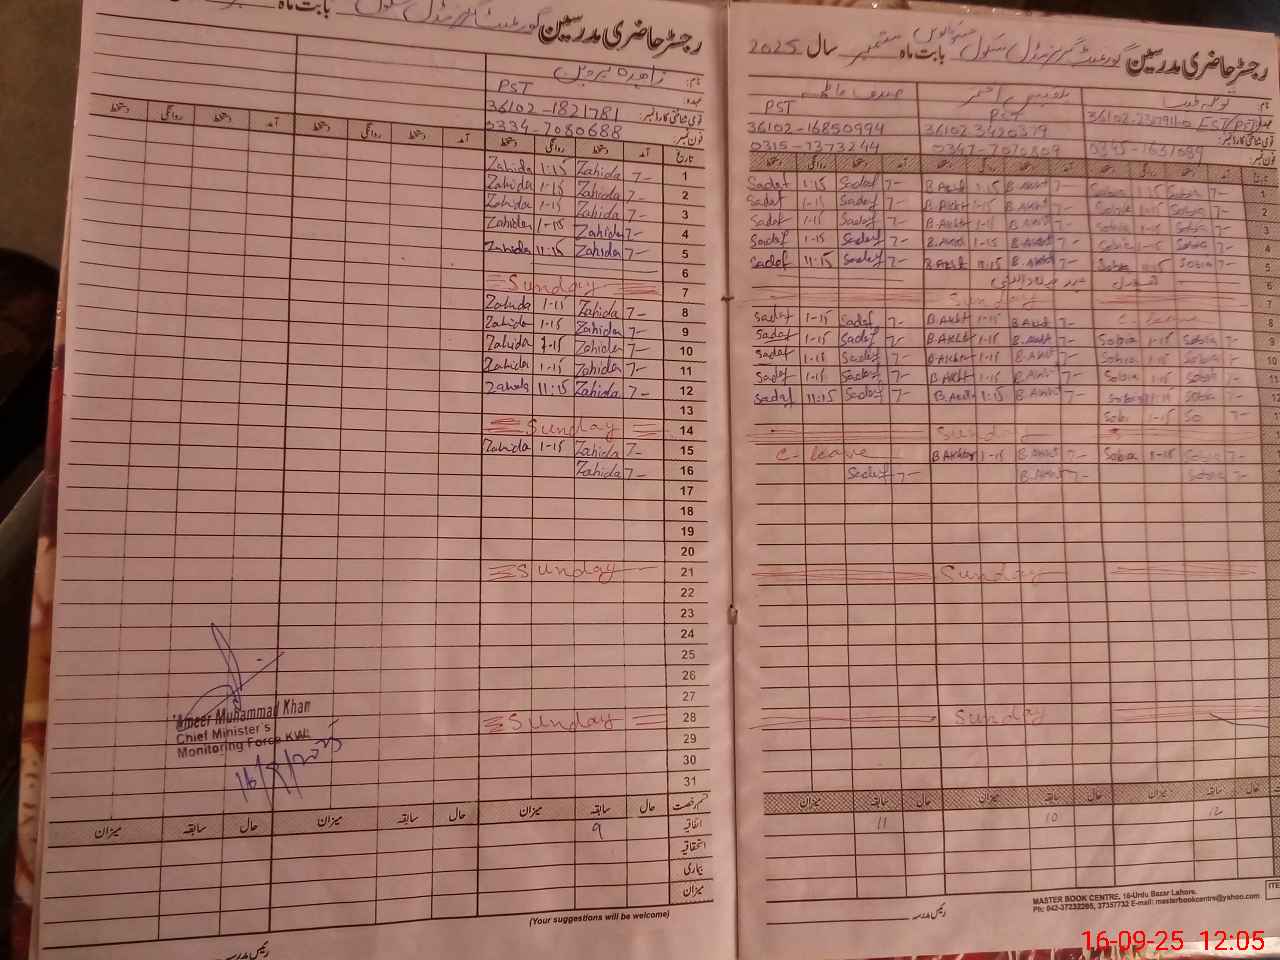 رجسٹر حاضری مدرسین گورنمنٹ گرلز مڈل سکول بابت ماہ
نام: زاہدہ پروین
عہدہ: PST
قومی شناختی کارڈ نمبر: 36102-1821781
فون نمبر: 0334-7080688
تاریخ آمد دستخط روانگی دستخط آمد دستخط روانگی دستخط آمد دستخط روانگی دستخط
1 7- Zahida 1:15 Zahida
2 7- Zahida 1-15 Zahida
3 7- Zahida 1-15 Zahida
4 7- Zahida 1-15 Zahida
5 7- Zahida 11:15 Zahida
6
7 Sunday
8 7- Zahida 1-15 Zahida
9 7- Zahida 1-15 Zahida
10 7- Zahida 1-15 Zahida
11 7- Zahida 1-15 Zahida
12 7- Zahida 11:15 Zahida
13
14 Sunday
15 7- Zahida 1-15 Zahida
16 7- Zahida
17
18
19
20
21 Sunday
22
23
24
25
26
27
28 Sunday
29
30
31
Ameer Muhammad Khan
Chief Minister's
Monitoring Force KWL
قسم رخصت حال سابقہ میزان حال سابقہ میزان حال سابقہ میزان
اتفاقیہ 9
استحقاقیہ
بیماری
میزان
(Your suggestions will be welcome)
رئیس مدرسہ
رجسٹر حاضری مدرسین گورنمنٹ گرلز مڈل سکول بابت ماہ ستمبر سال 2025
نام:
PST PST EST
36102-16850994 36102 3420379
0315-7373244 0347-7070809
آمد دستخط روانگی دستخط آمد دستخط روانگی دستخط آمد دستخط روانگی دستخط
1 7- Sobia 1-15 Sobia 7- B.Akht 1-15 B.Akht 7- Sadaf 1:15 Sadaf
2 7- Sobia 1-15 Sobia 7- B.Akht 1-15 B.Akht 7- Sadaf 1-15 Sadaf
3 7- Sobia 1-15 Sobia 7- B.Akht 1-15 B.Akht 7- Sadaf 1-15 Sadaf
4 7- Sobia 1-15 Sobia 7- B.Akht 1-15 B.Akht 7- Sadaf 1-15 Sadaf
5 7- Sobia 11:15 Sobia 7- B.Akht 11:15 B.Akht 7- Sadaf 11:15 Sadaf
6
7 Sunday
8 C-leave 7- B.Akht 1-15 B.Akht 7- Sadaf 1-15 Sadaf
9 7- Sobia 1-15 Sobia 7- B.Akht 1-15 B.Akht 7- Sadaf 1-15 Sadaf
10 7- Sobia 1-15 Sobia 7- B.Akht 1-15 B.Akht 7- Sadaf 1-15 Sadaf
11 7- Sobia 1-15 Sobia 7- B.Akht 1-15 B.Akht 7- Sadaf 1-15 Sadaf
12 7- Sobia Sobia 7- B.Akht 1:15 B.Akht 7- Sadaf 11:15 Sadaf
7- So 1-15 Sobi
Sunday
7- Sobia 1-15 Sobia 7- B.Akht 1-15 B.Akhtar C-leave
7- Sobia 7- B.Akht 7- Sadaf
Sunday
Sunday
حال سابقہ میزان حال سابقہ میزان حال سابقہ میزان
12 10 11
MASTER BOOK CENTRE, 16-Urdu Bazar Lahore.
Ph: 042-37232265, 37357732 E-mail: masterbookcentre@yahoo.com
رئیس مدرسہ
16-09-25 12:05